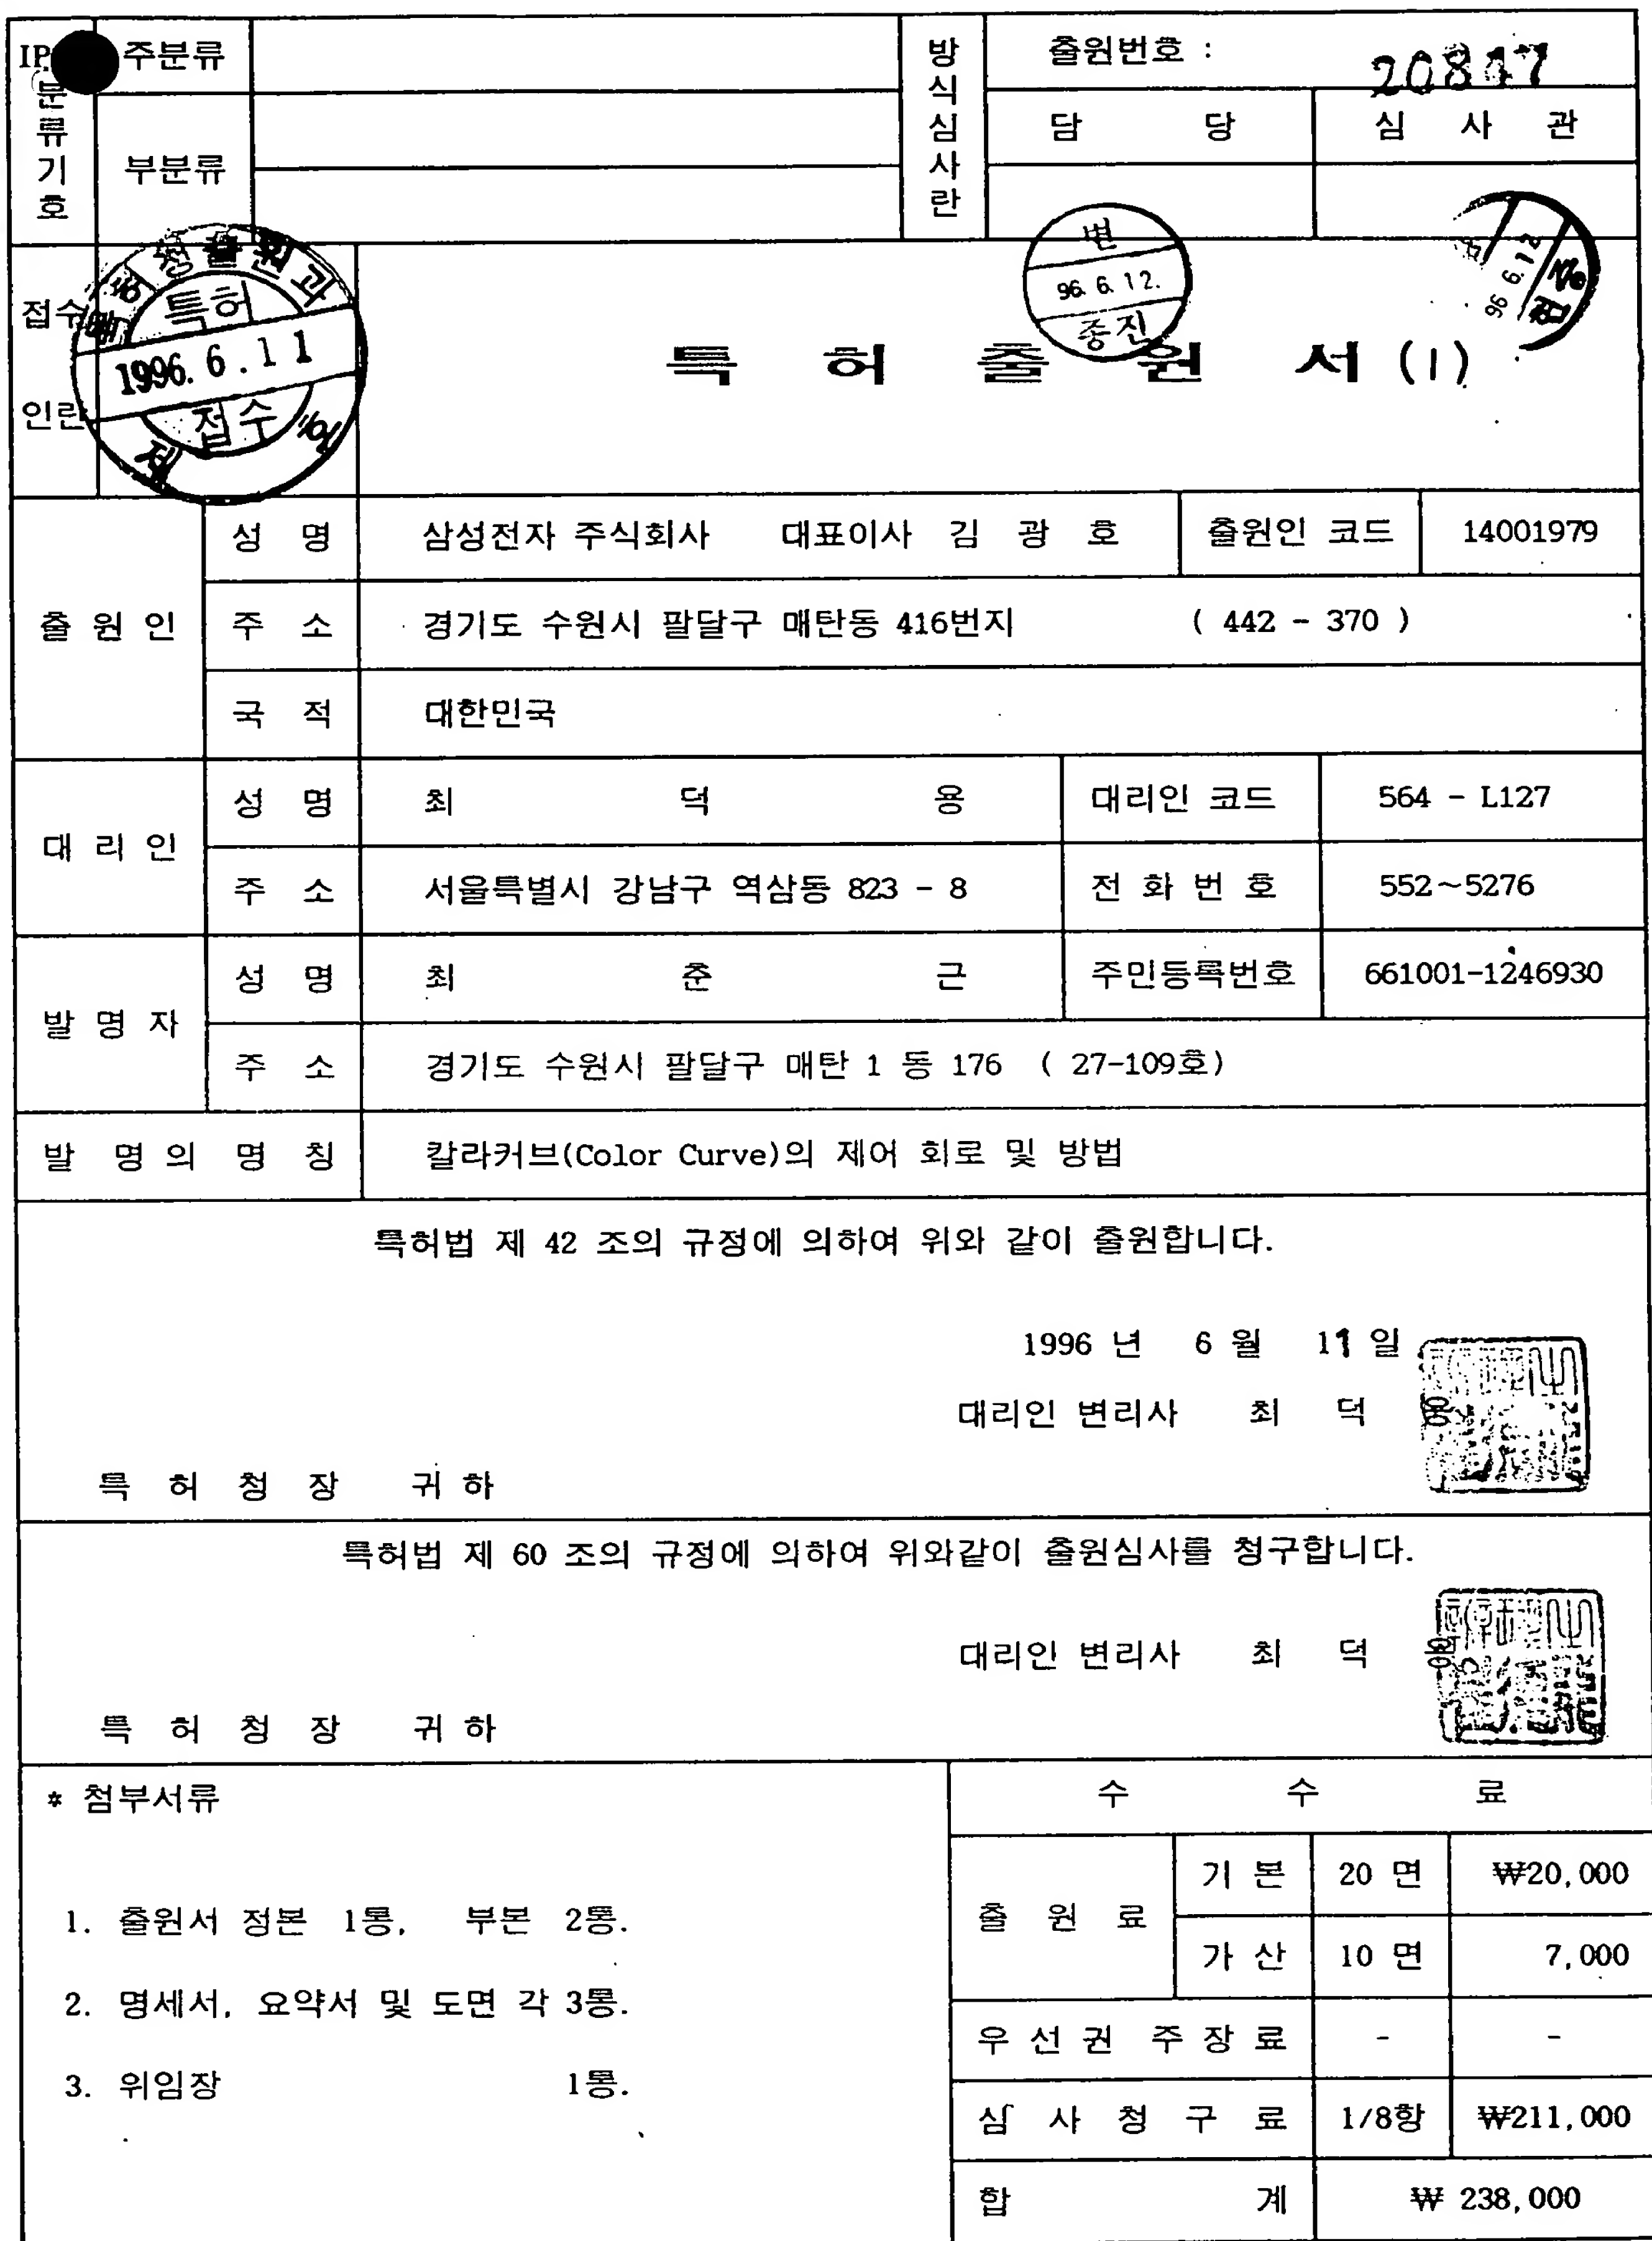 주분류
출원번호 :
분류기호
방식심사란
담 당
심 사 관
부분류
특허청출원과
특허
1996. 6. 11
접수
변
96. 6. 12.
종진
96 6. 12
접수인란
특 허 출 원 서 (1)
출 원 인
성 명
삼성전자 주식회사 대표이사 김 광 호
출원인 코드
14001979
주 소
경기도 수원시 팔달구 매탄동 416번지 ( 442 - 370 )
국 적
대한민국
대 리 인
성 명
최 덕 용
대리인 코드
564 - L127
주 소
서울특별시 강남구 역삼동 823 - 8
전 화 번 호
552~5276
발 명 자
성 명
최 춘 근
주민등록번호
661001-1246930
주 소
경기도 수원시 팔달구 매탄 1 동 176 ( 27-109호)
발 명 의 명 칭
칼라커브(Color Curve)의 제어 회로 및 방법
특허법 제 42 조의 규정에 의하여 위와 같이 출원합니다.
1996 년 6 월 11 일
대리인 변리사 최 덕 용
특 허 청 장 귀 하
특허법 제 60 조의 규정에 의하여 위와같이 출원심사를 청구합니다.
대리인 변리사 최 덕 용
특 허 청 장 귀 하
* 첨부서류
1. 출원서 정본 1통, 부본 2통.
2. 명세서, 요약서 및 도면 각 3통.
3. 위임장 1통.
수 수 료
출 원 료
기 본
20 면
₩20,000
가 산
10 면
7,000
우 선 권 주 장 료
-
-
심 사 청 구 료
1/8항
₩211,000
합 계
₩ 238,000